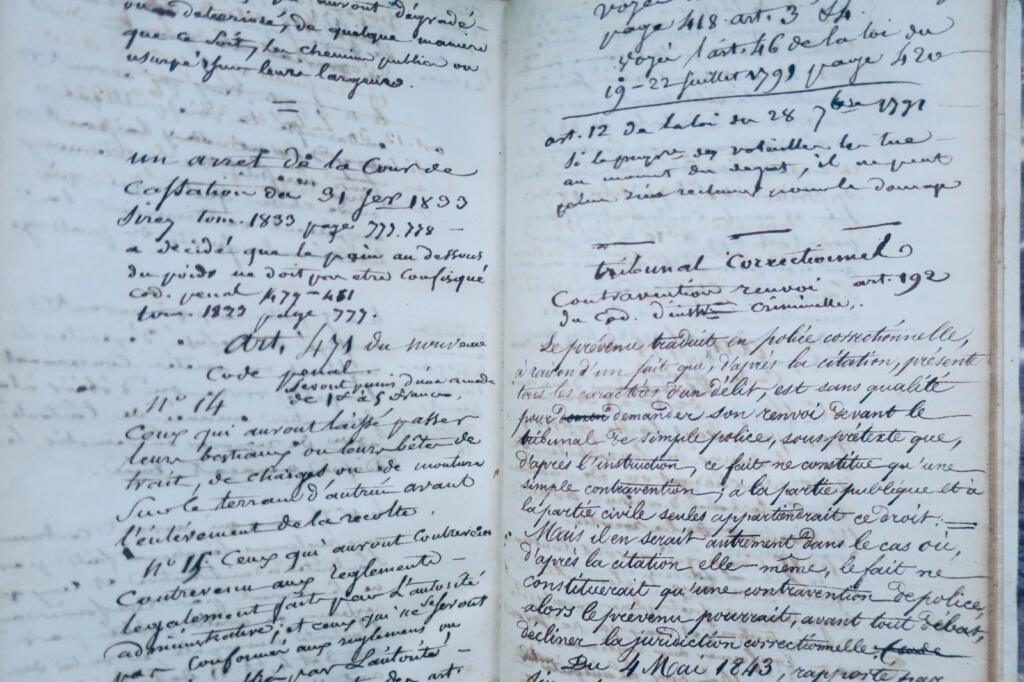 auront dégradé
ou détérioré, de quelque manière
que ce soit, les chemins publics ou
usurpé sur leur largeur.
un arret de la Cour de
Cassation du 31 Jer 1833
Sirey tom. 1833 page 777.778 -
a décidé que le pain au dessous
du poids ne doit pas etre confisqué
Cod. penal 479 - 481
tom. 1833 page 777.
Art. 471 du nouveau
Code penal
Seront punis d'une amende
de 1f à 5 francs.
N° 14
Ceux qui auront laissé passer
leurs bestiaux ou leurs bête de
trait, de charges ou de monture
sur le terrain d'autrui avant
l'enlèvement de la recolte.
N° 15 Ceux qui auront
Contrevenu aux reglements
legalement fait par l'autorité
administrative; et ceux qui ne se seront
pas conformer aux reglemens ou
par l'autorité -
art.
page 418. art. 3 84
voyez l'art. 46 de la loi du
19-22 juillet 1791 page 420
art. 12 de la loi du 28 7bre 1791
si le des volailles les tue
au moment du degat, il ne peut
rien reclamer pour le domage
tribunal correctionnel
Contravention renvoi art. 192
du cod. d'instr. criminelle.
Le prévenu traduit en police correctionnelle,
à raison d'un fait qui, d'après la citation, présent
tous les caractères d'un délit, est sans qualité
pour demander son renvoi devant le
tribunal de simple police, sous prétexte que,
d'après l'instruction, ce fait ne constitue qu'une
simple contravention; à la partie publique et à
la partie civile seules appartiendrait ce droit. =
Mais il en serait autrement dans le cas où,
d'après la citation elle-même, le fait ne
constituerait qu'une contravention de police,
alors le prévenu pourrait, avant tout débat,
décliner la juridiction correctionnelle.
Du 4 Mai 1843; rapporté par